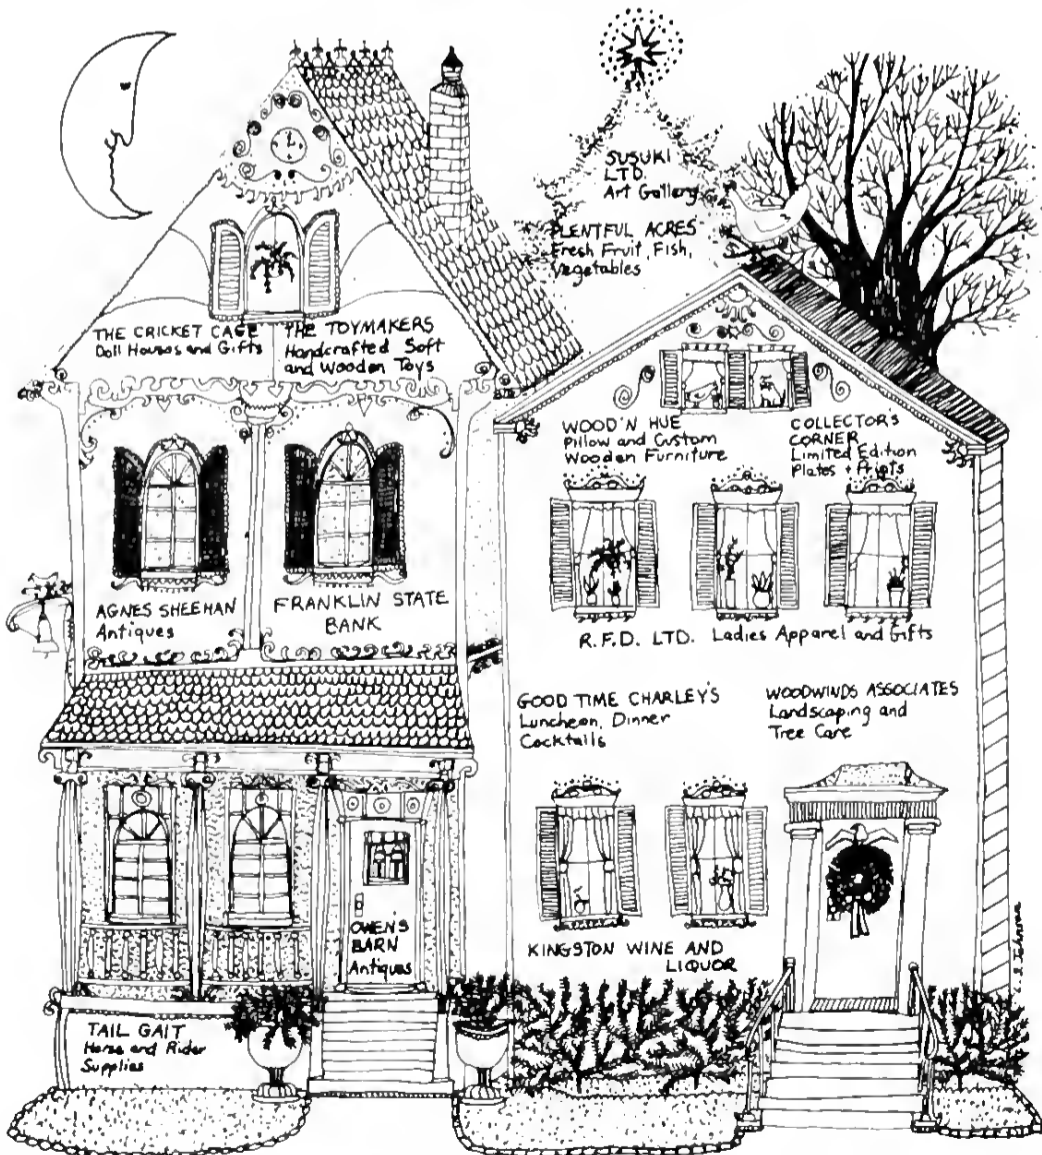 SUSUKI
LTD.
Art Gallery
PLENTIFUL ACRES
Fresh Fruit, Fish,
Vegetables
THE CRICKET CAGE
Doll Houses and Gifts
THE TOYMAKERS
Handcrafted Soft
and Wooden Toys
WOOD'N HUE
Pillow and Custom
Wooden Furniture
COLLECTOR'S
CORNER
Limited Edition
Plates + Prints
AGNES SHEEHAN
Antiques
FRANKLIN STATE
BANK
R.F.D. LTD. Ladies Apparel and Gifts
GOOD TIME CHARLEY'S
Luncheon, Dinner
Cocktails
WOODWINDS ASSOCIATES
Landscaping and
Tree Care
OWEN'S
BARN
Antiques
KINGSTON WINE AND
LIQUOR
TAIL GAIT
Horse and Rider
Supplies